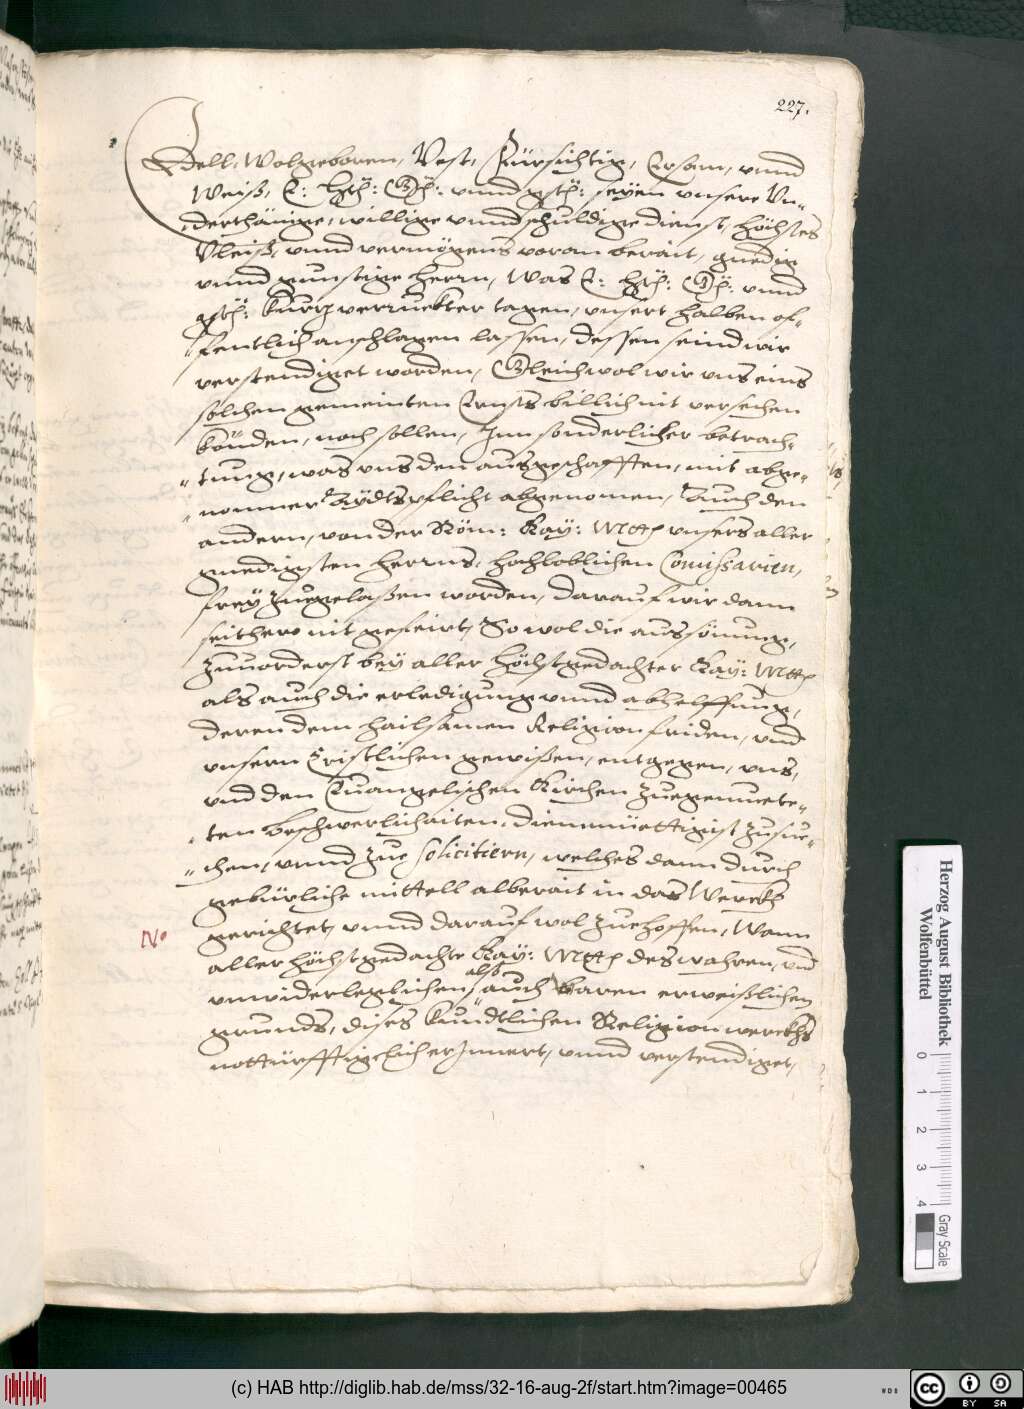 227.
Edell, Wolgeboren, Vest, Fürsichtig, Ersam, vnnd
Weiß, E: hrl: Gl: vnnd gstl: seyen vnsere Vn-
derthänige, willige vnnd schuldige dienst, höchstes
Vleiß, vnnd vermögens voran berait, gnedig
vnnd gunstige herrn, Was E: hrl: Gl: vnnd
gstl: kurtz verruckter tagen, vnsert halben of-
fentlich anschlagen lassen, dessen seind wir
verstendiget worden, Gleichwol wir vns eins
solchen gemeinten Ernsts billich nit versehen
könden, noch sollen, Inn sonderlicher betrach-
tung, was vns den ausgeschafften, mit abge-
nommer Aydtspflicht abgenomen, auch den
andern, von der Röm: Kay: Mtt: vnsers aller
gnedigsten herrns, hochloblichen Comissarien,
frey zuegelaßen worden, darauf wir dann
seithero nit gefeirt, So wol die aussönung,
zuuorderst bey aller höchstgedachter Kay: Mtt:
als auch die erledigung vnnd abhelffung,
deren dem hailsamen Religion friden, vnd
vnsern Cristlichen gewißen, entgegen, vns,
vnd den Euangelischen Kirchen zuegemuete-
ten beschwerlichaiten, diemmüettigist zusue-
chen, vnnd zue solicitiern, welches dann durch
gebürliche mittell alberait in das Werckh
gerichtet, vnnd darauf wol zuehoffen, Wann
No
aller höchstgedachte Kay: Mtt: des wahren, vnd
vnwiderleglichen, alß auch baren erweißlichen
grunds, dises kundtlichen Religion werckhs
notturfftigclich erJnnert, vnnd verstendiget,
Herzog August Bibliothek
Wolfenbüttel
0 1 2 3 4
Gray Scale
(c) HAB http://diglib.hab.de/mss/32-16-aug-2f/start.htm?image=00465
WDB
cc BY SA